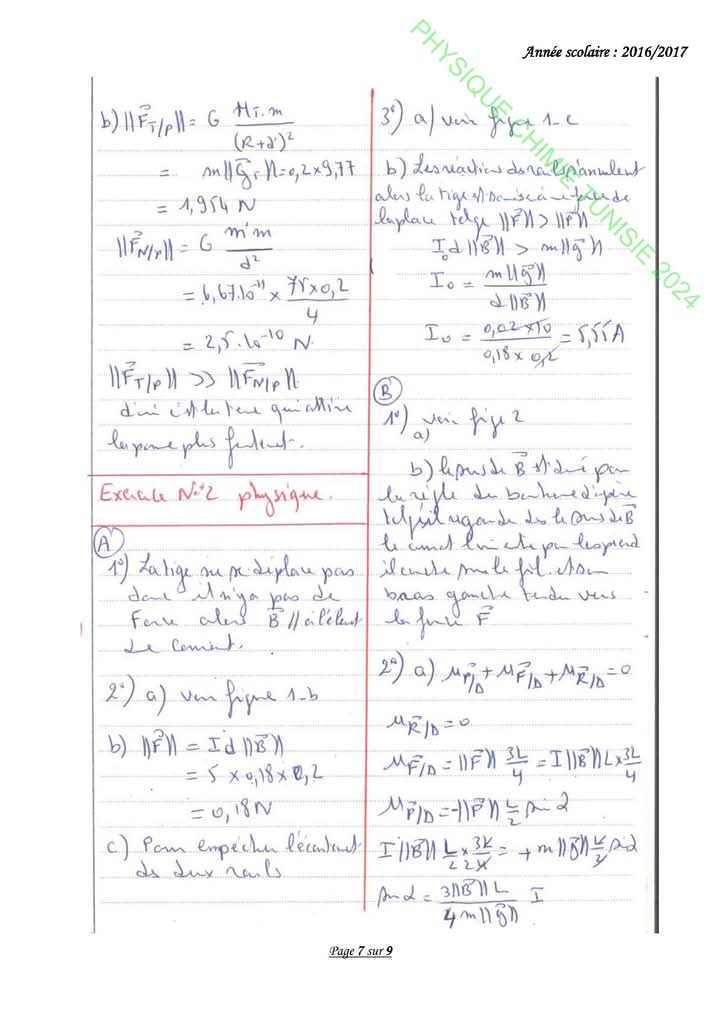 Année scolaire : 2016/2017
PHYSIQUE CHIMIE TUNISIE 2024
b) ||F⃗T/P|| = G MT.m / (R+d')²
= m||G⃗T|| = 0,2 x 9,77
= 1,954 N
||F⃗N/P|| = G m'm / d²
= 6,67.10⁻¹¹ x 75 x 0,2 / 4
= 2,5.10⁻¹⁰ N
||F⃗T/P|| >> ||F⃗N/P||
la plus
Exercice N°2 physique.
A
1°) La tige ne se déplace pas
donc il n'y a pas de
Force alors B⃗ // à l'élément
de courant.
2°) a) voir figure 1-b
b) ||F⃗|| = I d ||B⃗||
= 5 x 0,18 x 0,2
= 0,18 N
c) Pour empêcher l'écartement
des deux rails
3°) a) voir figure 1-c
b) Les réactions des rails s'annulent
alors la tige est soumise à une force de
laplace telque ||F⃗|| > ||P⃗||
I₀ d ||B⃗|| > m||g⃗||
I₀ = m||g⃗|| / d||B⃗||
I₀ = 0,02 x 10 / 0,18 x 0,2 = 5,55 A
B
1°) voir figure 2
a)
b) le sens de B⃗ est donné par
la règle du bonhomme d'ampère
regarde le sens de B⃗
le courant par les pieds
sur le fil et son
bras gauche tendu vers
la force F⃗
2°) a) M P⃗/Δ + M F⃗/Δ + M R⃗/Δ = 0
M R⃗/Δ = 0
M F⃗/Δ = ||F⃗|| 3L/4 = I||B⃗|| L x 3L/4
M P⃗/Δ = -||P⃗|| L/2 sin α
I ||B⃗|| L/2 x 3L/2 = + m||g⃗|| L/2 sin α
sin α = 3||B⃗|| L / 4 m||g⃗|| I
Page 7 sur 9